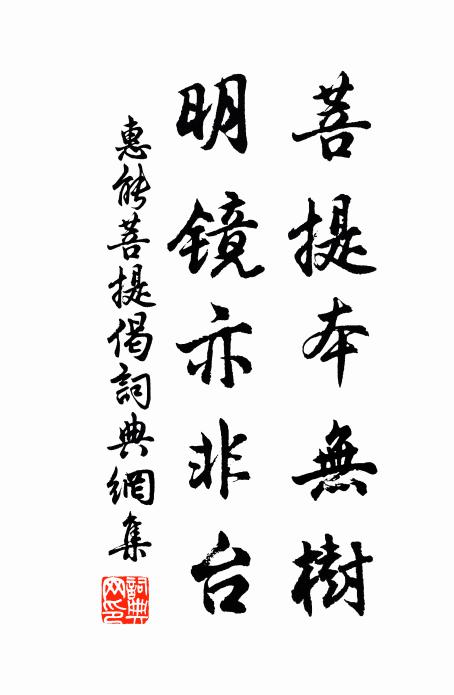 菩提本無樹
明镜亦非台
惠能菩提偈詞典網集
詞典网印